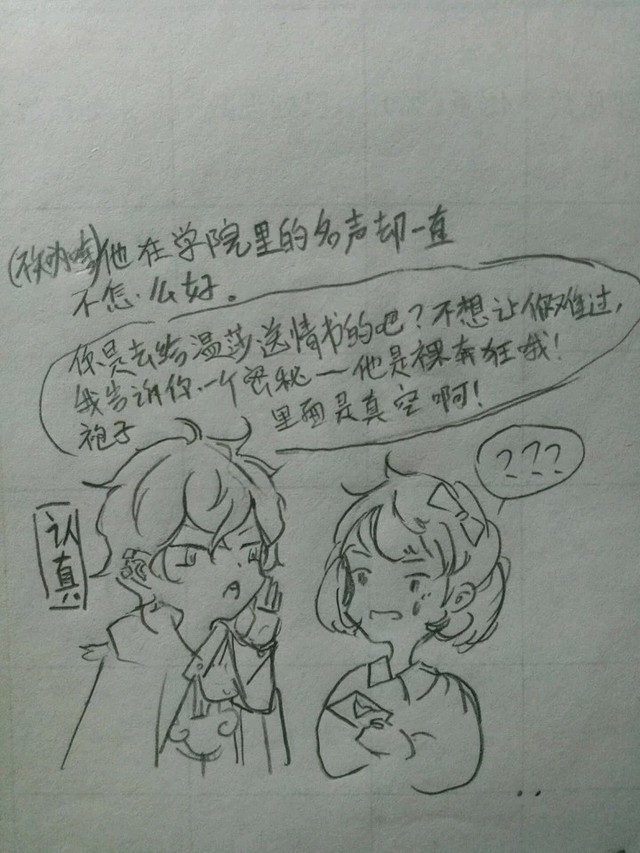 他在学院里的名声却一直
不怎么好。
你是去给温莎送情书的吧？不想让你难过，
我告诉你一个密秘—他是裸奔狂哦！
袍子里面是真空啊！
???
认真